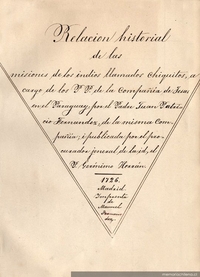 Relacion historial
de las
misiones de los indios llamados Chiquitos, a
cargo de los P. P. de la Compañia de Jesus
en el Paraguay, por el Padre Juan Patri-
cio Fernandez, de la misma Com-
pañia; i publicada por el pro-
curador jeneral de la id., el
P. Gerónimo Herrán.
1726.
Madrid.
Imprenta
de
Manuel
Fernan-
dez,